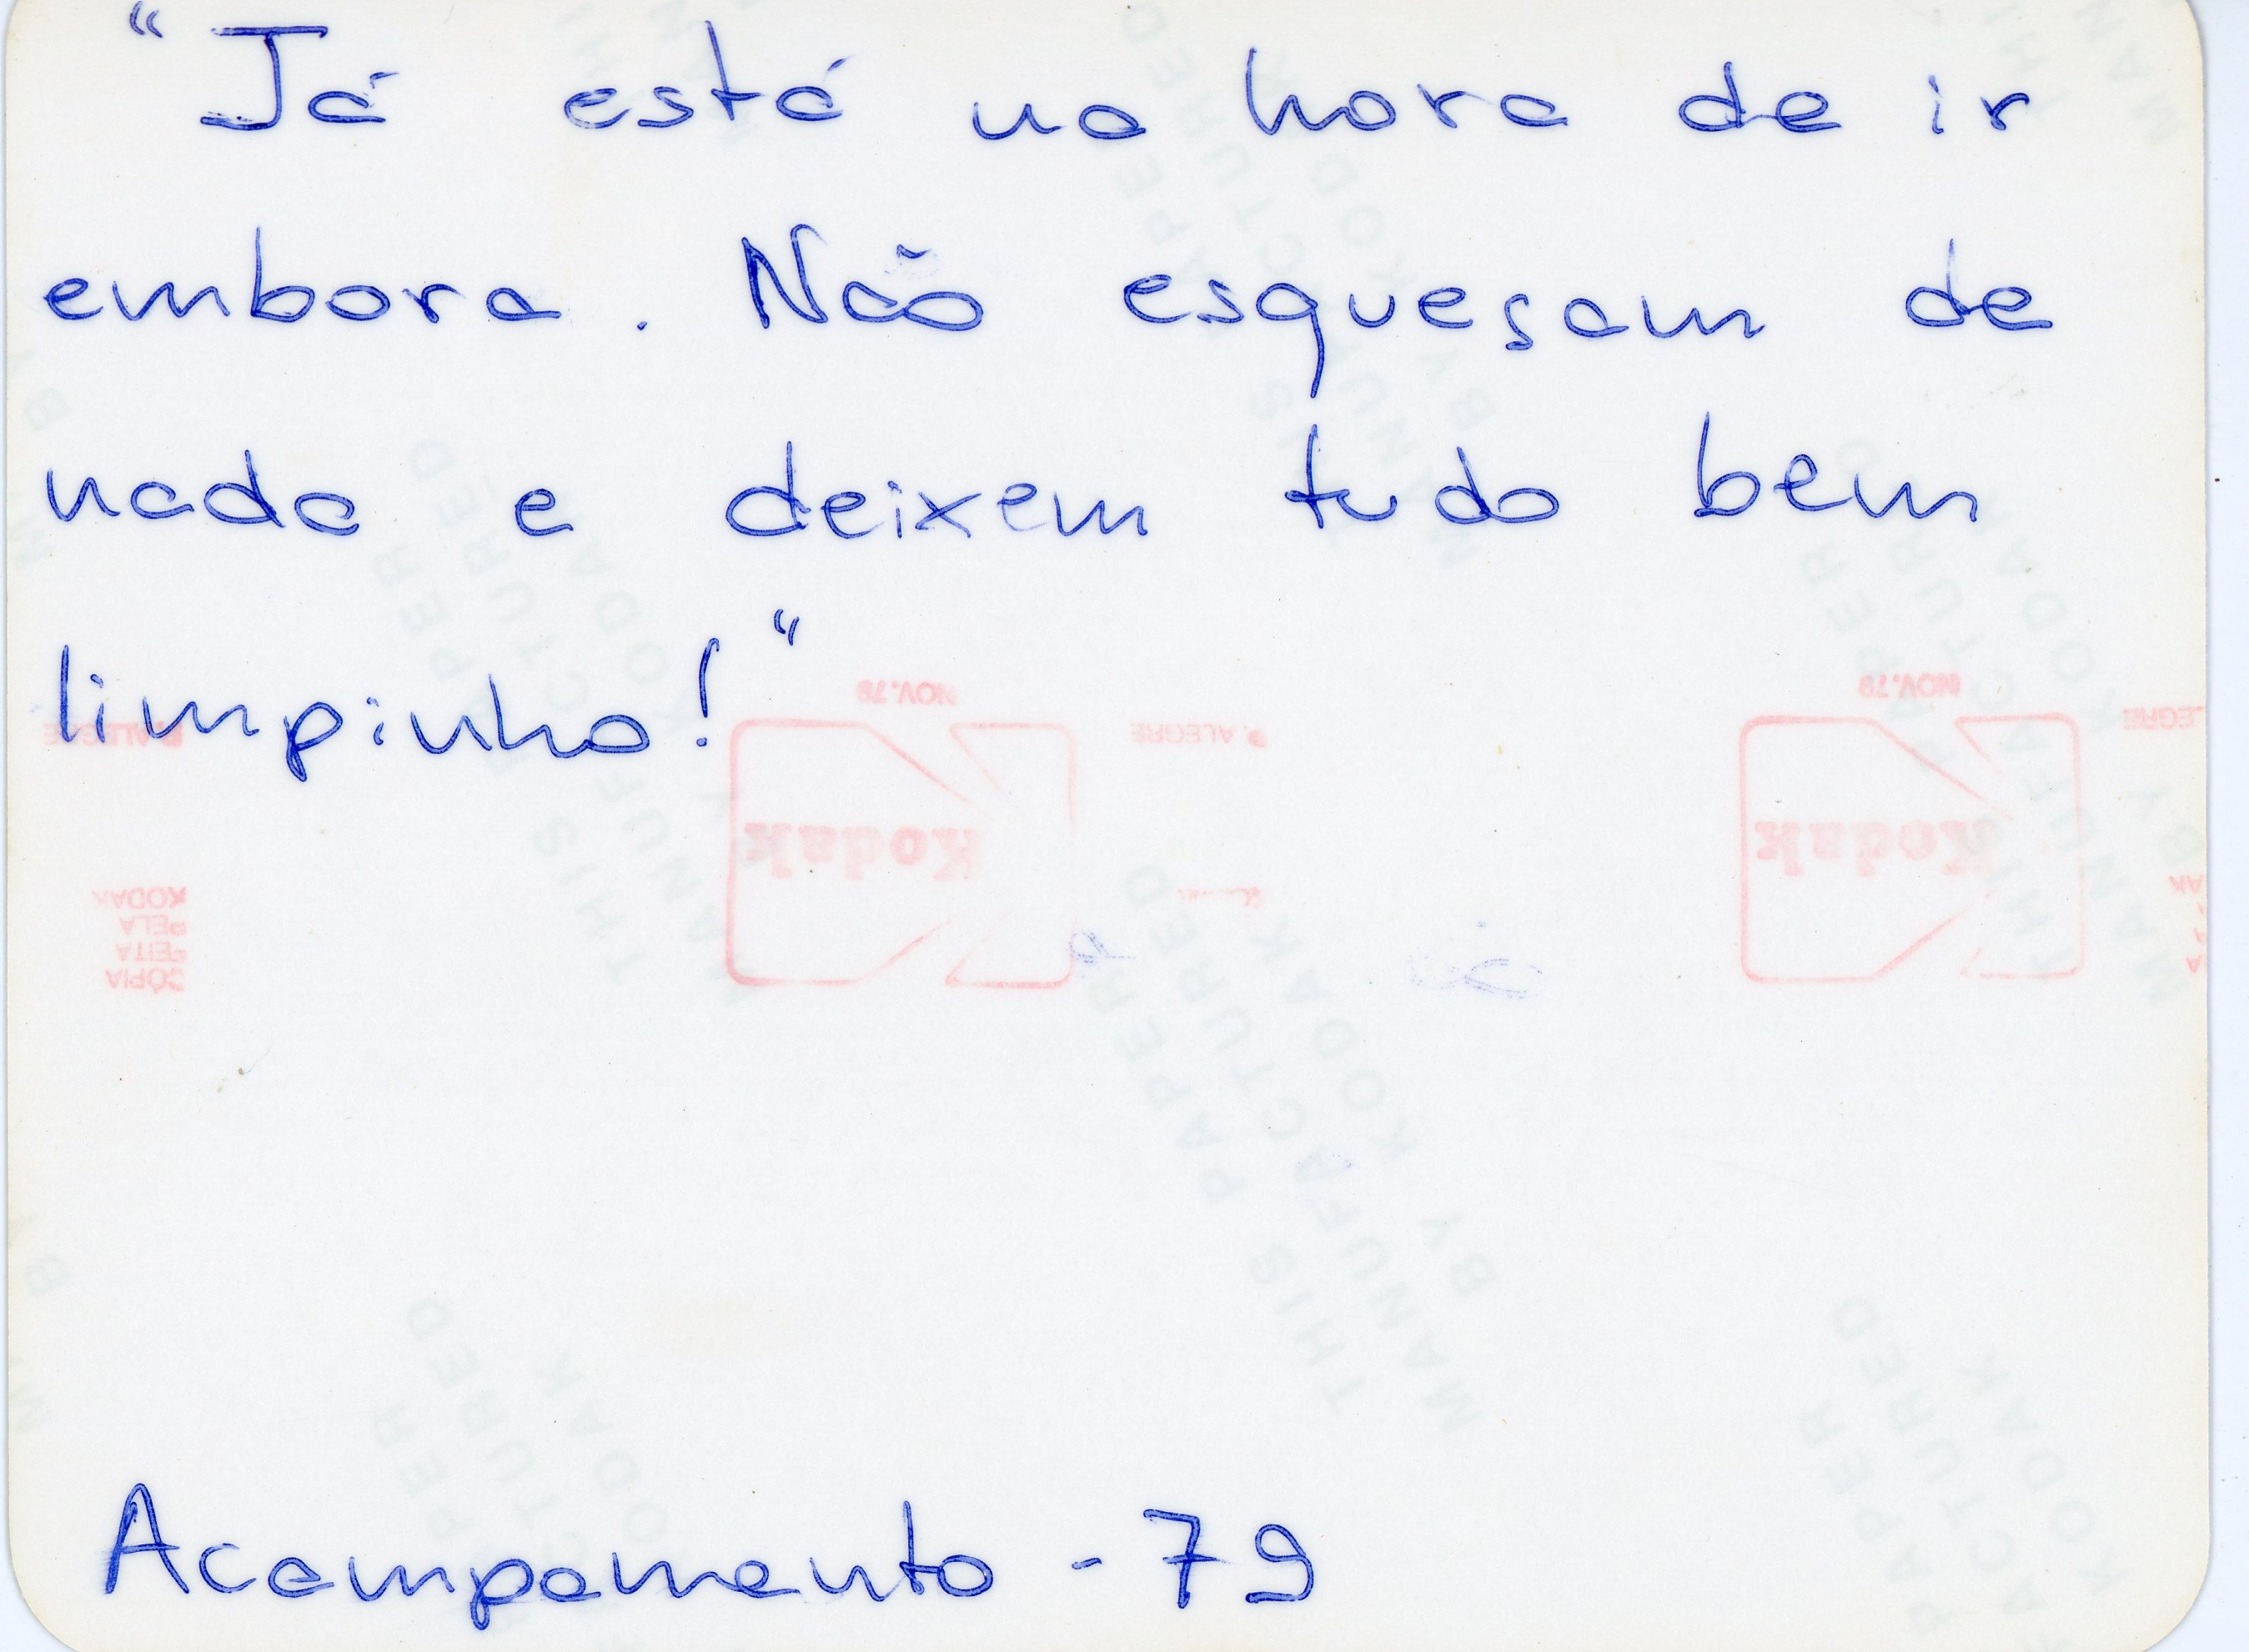 "Já está na hora de ir
embora. Não esquesam de
nada e deixem tudo bem
limpinho!"
NOV.79
NOV.79
P. ALEGRE
P. ALEGRE
LEGRE
Kodak
Kodak
CÓPIA
FEITA
PELA
KODAK
THIS PAPER
MANUFACTURED
BY KODAK
Acampamento - 79